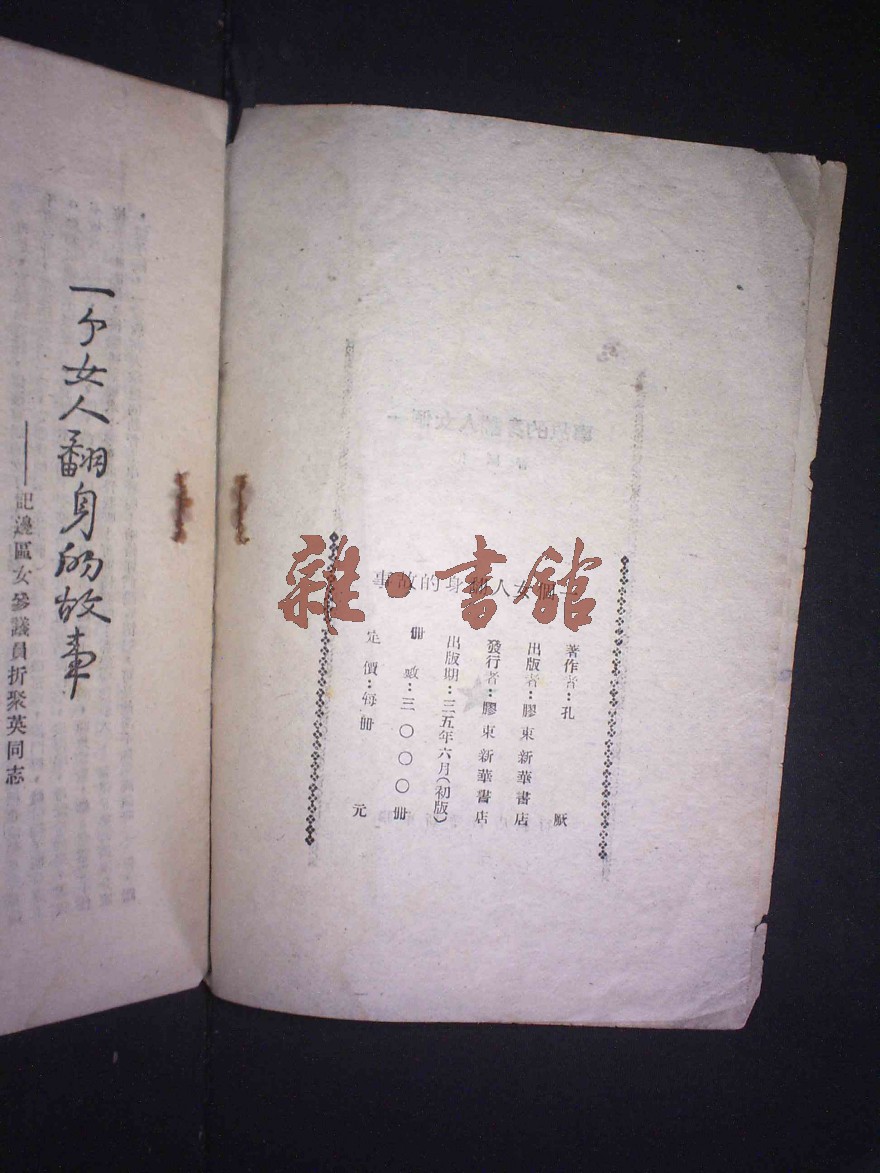 一个女人翻身的故事
——記邊區女參議員折聚英同志
一個女人翻身的故事
著作者：孔 厥
出版者：膠東新華書店
發行者：膠東新華書店
出版期：三五年六月(初版)
冊 數：三〇〇〇冊
定 價：每冊 元
雜·書館